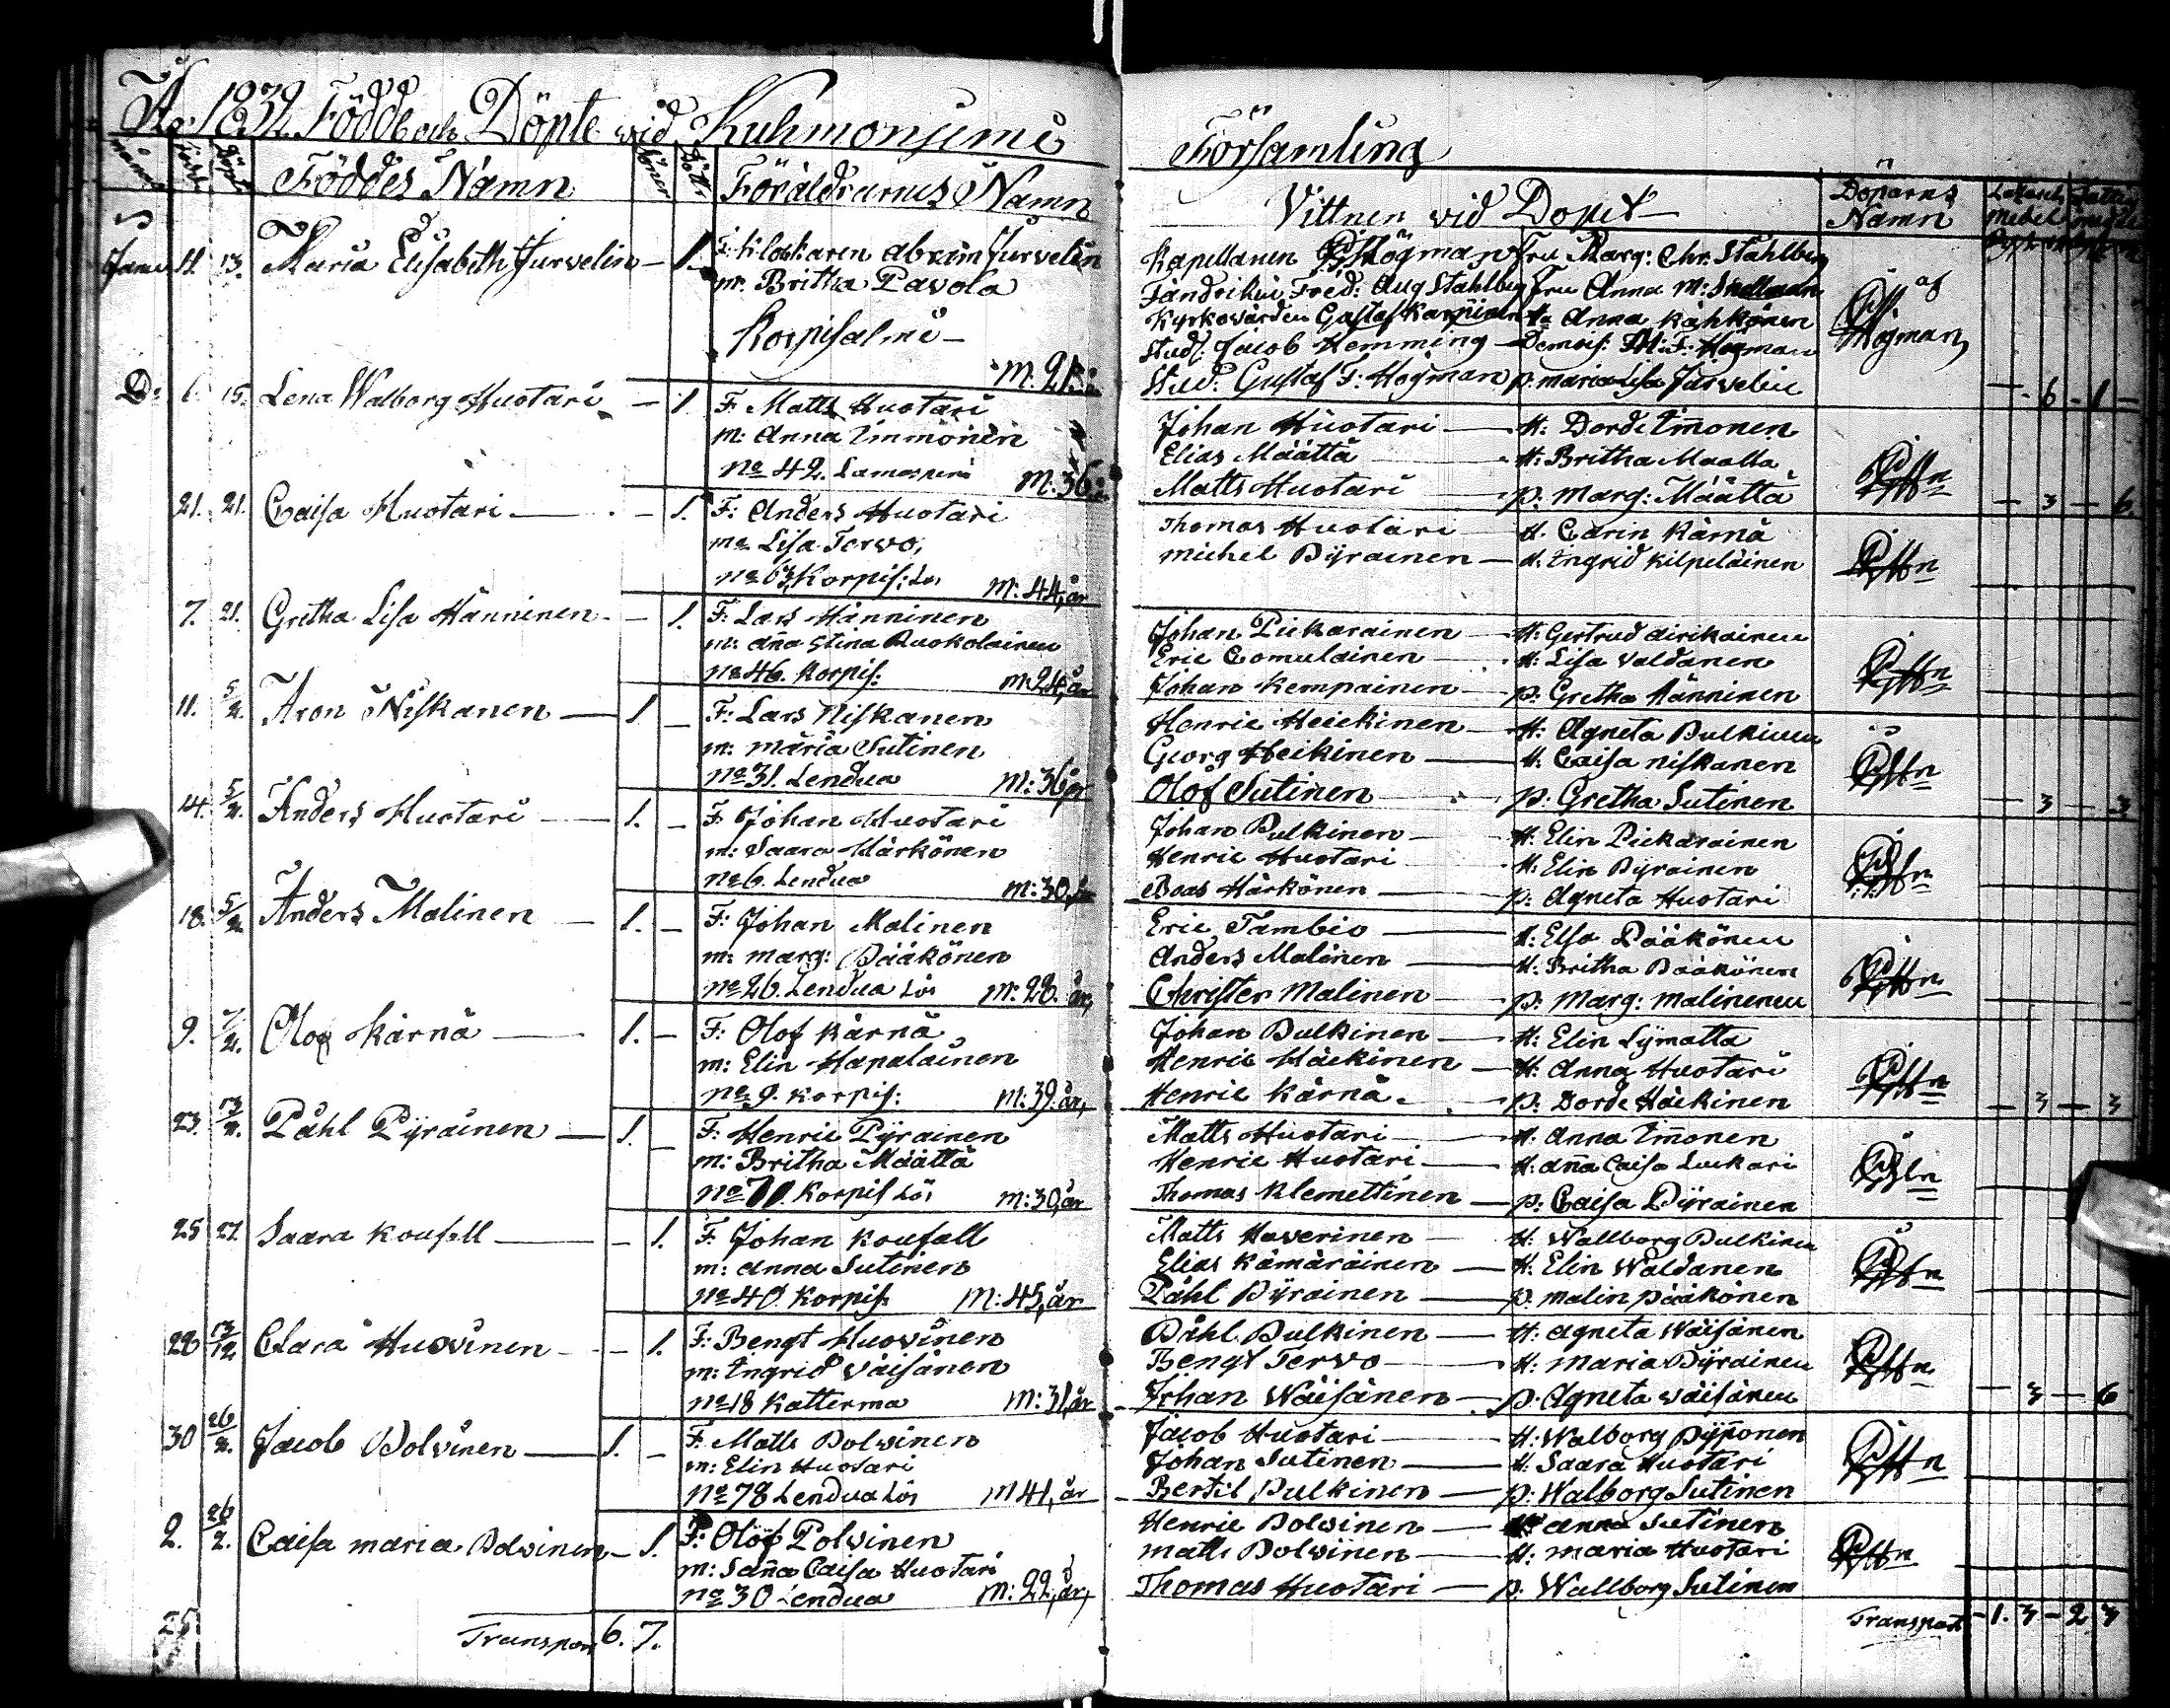 Åo 1832 Födde och Döpte wid Kuhmoniemi
Församling
Födde Döpte Föddes Namn Söner Föräldrarnes Namn
Vittnen wid Dopet Döparns Namn
Janu: 11. 13. Maria Elisabeth Jurvelin — 1. F: Klockaren Abram Jurvelin
m: Britha Pavola
Korpisalmi
M: 21 år
Kapellanen Högman Fru Marg: Chr. Ståhlberg
Fändriken Fred: Aug Ståhlberg Fru Anna M: Snellman
Kyrkovärden Gustaf Karpinen Anna Kähkönen
Stud: Jacob Hemming — Demois: F: Hogman
Stud: Gustaf F: Högman p. maria Lisa Jurvelin
Högman
— 6 — 1 —
D: 6. 15. Lena Walborg Huotari — 1. F: Matts Huotari
m: Anna Immonen
No 42. M: 36 år
Johan Huotari — H: Dorde Immonen
Elias Määttä — H: Britha Maatta
Matts Huotari — p: Marg: Määttä
— 3 — 6.
21. 21. Caisa Huotari — 1. F: Anders Huotari
m: Lisa Tervo,
No 63 Korpis: Lös M: 44, år
Thomas Huotari H. Carin Kärnä
Michel Pyrainen — H: Ingrid Kilpeläinen
7. 21. Gretha Lisa Hänninen — 1. F: Lars Hänninen
m: Anna Stina Ruokolainen
No 46. Korpis: M: 24, år
Johan Piekarainen — H: Gertrud Airikainen
Eric Comulainen — H: Lisa Valdanen
Johan Kempainen — p: Gretha Hänninen
11. 5/2. Aron Niskanen — 1. — F: Lars Niskanen
m: Maria Sutinen
No 31. Lendua M: 36 år
Henric Heickinen — H: Agneta Pulkinen
Georg Heikinen — H: Caisa Niskanen
Olof Sutinen — p: Gretha Sutinen
— 3 — 3
14. 5/2. Anders Huotari — 1. — F: Johan Huotari
m: Saara Härkönen
No 6. Lendua M: 30, år
Johan Pulkinen — H: Elin Piekarainen
Henric Huotari — H: Elin Pyrainen
Boas Härkönen — p: Agneta Huotari
18. 5/2 Anders Malinen — 1. — F: Johan Malinen
m: Marg: Pääkönen
No 26. Lendua Lös M: 28. år,
Eric Tambio — H: Elsa Pääkönen
Anders Malinen — H: Britha Pääkönen
Christer Malinen — p: Marg: Malinenen
9. 7/2. Olof Kärnä — 1. — F: Olof Kärnä
m: Elin Hapalainen
No 9. Korpis: M: 39. år,
Johan Pulkinen — H: Elin Lymatta
Henric Häikinen — H: Anna Huotari
Henric Kärnä — p: Dorde Häikinen
— 3 — 3
23. 13/2. Påhl Pyräinen — 1. — F: Henric Pyrainen
m: Britha Määttä
Korpis Lös M: 30, år
Matts Huotari — H: Anna Immonen
Henric Huotari — H: Anna Caisa Luckari
Thomas Klemettinen — p: Caisa Pyrainen
25 27. Saara Koufall — 1. F: Johan Koufall
m: Anna Sutinen
No 40. Korpis M: 45, år
Matts Haverinen H: Wallborg Pulkinen
Elias Kämäräinen — H: Elin Waldanen
Påhl Pyrainen — p: Malin Pääkönen
28 13/12 Clara Huovinen — 1. F: Bengt Huovinen
m: Ingrid Väisänen
No 18 Katterma M: 31, år
Påhl Pulkinen — H: Agneta Wäisänen
Bengt Tervo — H: Maria Pyrainen
Johan Wäisänen — p: Agneta Wäisänen
— 3 — 6
30 26/2. Jacob Polvinen — 1. — F: Matts Polvinen
m: Elin Huotari
No 78 Lendua Lös M 41, år
Jacob Huotari — H: Walborg Pypponen
Johan Sutinen — H: Saara Huotari
Bertil Pulkinen — p: Walborg Sutinen
2. 26/2. Caisa maria Polvinen — 1. F: Olof Polvinen
m: Sanna Caisa Huotari
No 30 Lendua M: 22, år,
Henric Polvinen — Anna Sutinen
Matts Polvinen — H: Maria Huotari
Thomas Huotari — p. Wallborg Sutinen
Transport 6. 7.
Transport — 1. 3 — 2. 3